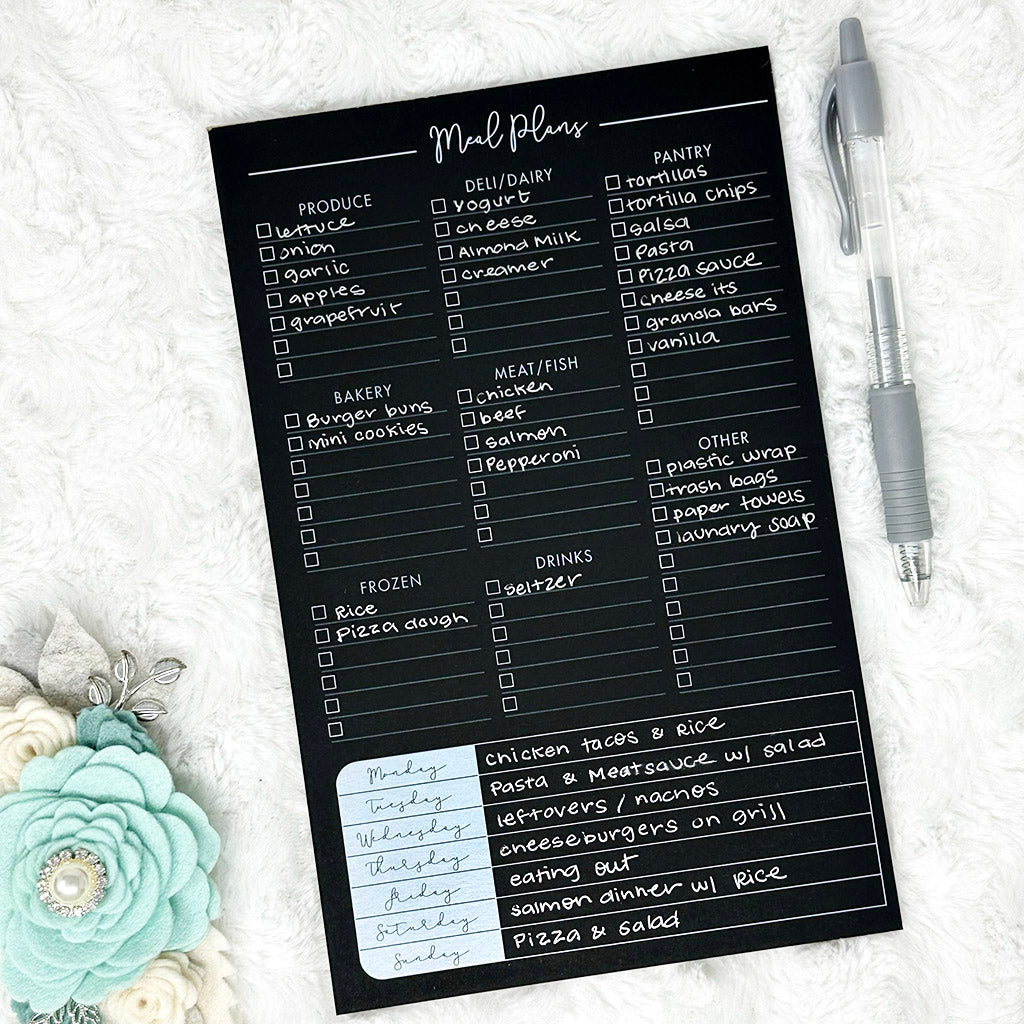 Meal Plans
PRODUCE
lettuce
onion
garlic
apples
grapefruit
BAKERY
Burger buns
mini cookies
FROZEN
Rice
Pizza dough
DELI/DAIRY
Yogurt
cheese
Almond Milk
creamer
MEAT/FISH
chicken
beef
salmon
Pepperoni
DRINKS
seltzer
PANTRY
tortillas
tortilla chips
salsa
Pasta
Pizza sauce
cheese its
granola bars
vanilla
OTHER
plastic wrap
trash bags
paper towels
laundry soap
Monday chicken tacos & Rice
Tuesday Pasta & Meatsauce w/ salad
Wednesday leftovers / nachos
Thursday cheeseburgers on grill
Friday eating out
Saturday salmon dinner w/ Rice
Sunday Pizza & salad